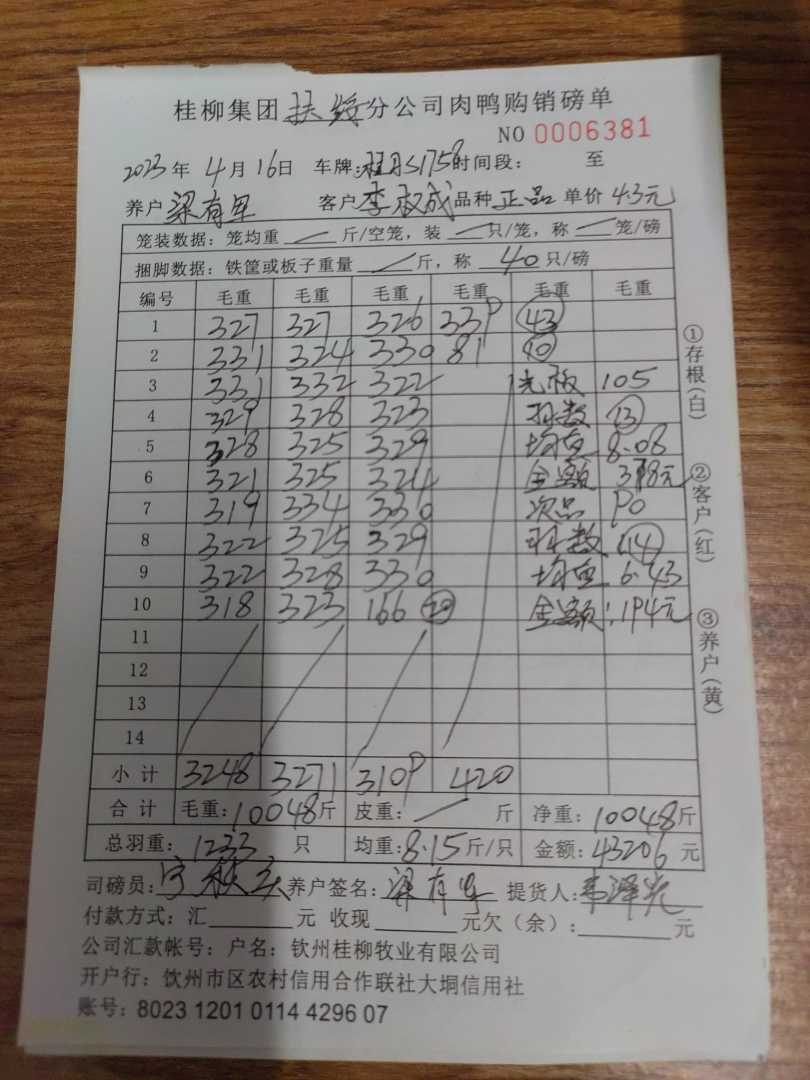 桂柳集团扶绥分公司肉鸭购销磅单
NO 0006381
2023年4月16日 车牌:桂 S1758时间段: 至
养户 梁有 客户 李权成 品种 正品 单价 4.3元
笼装数据:笼均重 / 斤/空笼,装 / 只/笼,称 / 笼/磅
捆脚数据:铁筐或板子重量 / 斤,称 40 只/磅
编号 毛重 毛重 毛重 毛重 毛重 毛重
1 327 327 326 339 43
2 331 324 330 81 10
3 331 332 322 光板 105
4 329 328 323 羽数 13
5 328 325 329 均重 8.08
6 321 325 324 金额 元
7 319 334 330 次品 90
8 322 325 329 羽数 14
9 322 328 330 均重 6.43
10 318 323 166 金额:194元
11
12
13
14
小计 3248 3271 3109 420
合计 毛重:10048斤 皮重: / 斤 净重:10048斤
总羽重: 1233 只 均重:8.15斤/只 金额:43206元
司磅员: 养户签名:梁有 提货人:韦泽光
付款方式:汇 元 收现 元欠(余): 元
公司汇款帐号:户名:钦州桂柳牧业有限公司
开户行:饮州市区农村信用合作联社大垌信用社
账号:8023 1201 0114 4296 07
①存根(白)
②客户(红)
③养户(黄)